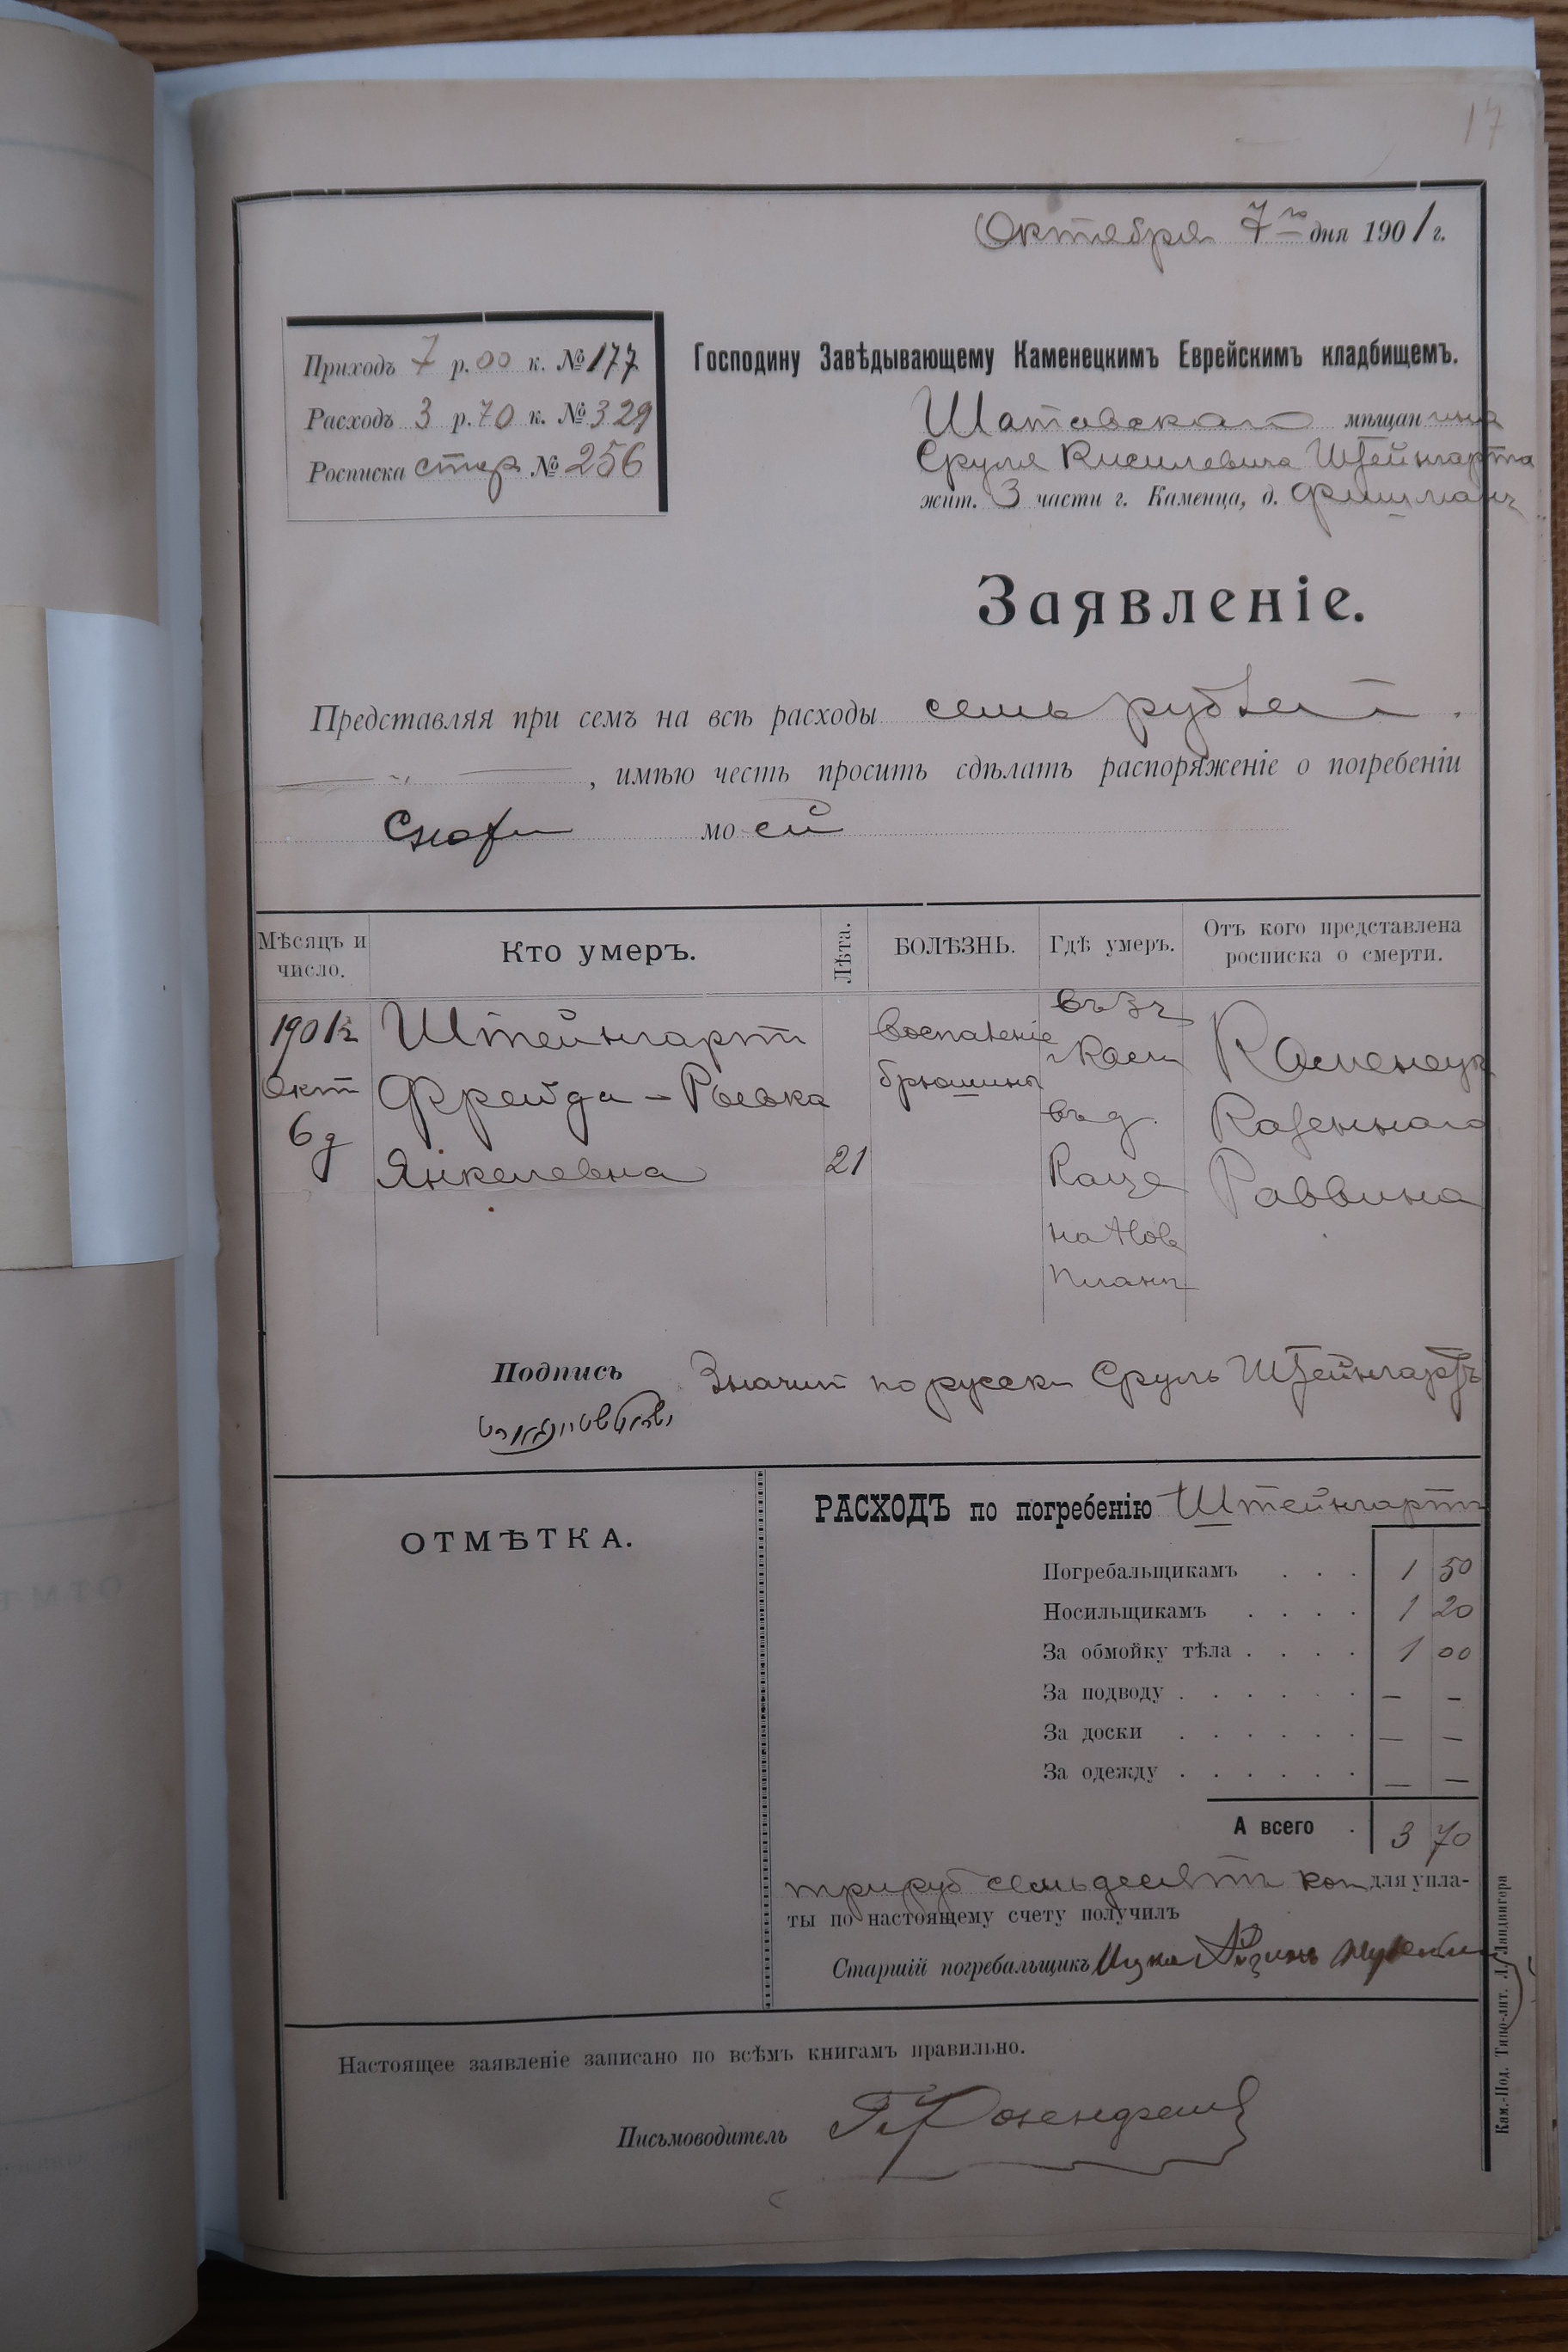 17
Октября 7го дня 1901 г.
Приходъ 7 р. 00 к. № 177
Расходъ 3 р. 70 к. № 329
Росписка стар № 256
Господину Завѣдывающему Каменецкимъ Еврейскимъ кладбищемъ.
Шатавскаго мѣщанина
Сруля Кисилевича Штейнгарта
жит. 3 части г. Каменца, д. Фишманъ
Заявленіе.
Представляя при семъ на всѣ расходы семь рублей.
, имѣю честь просить сдѣлать распоряженіе о погребеніи
моей
Мѣсяцъ и число.
Кто умеръ.
Лѣта.
БОЛѢЗНЬ.
Гдѣ умеръ.
Отъ кого представлена росписка о смерти.
1901г
Окт
6 д
Штейнгартъ
Фрейда - Рывка
Янкелевна
21
Воспаленіе
брюшины
въ 3 ч
г Кам
въ д.
Каца
на Нов
планѣ
Каменецк
Казеннаго
Раввина
Подпись Значит по русски Сруль Штейнгартъ
ОТМѢТКА.
РАСХОДЪ по погребенію Штейнгартъ
Погребальщикамъ . . . 1 50
Носильщикамъ . . . . 1 20
За обмойку тѣла . . . . 1 00
За подводу . . . . . — —
За доски . . . . . — —
За одежду . . . . . — —
А всего . 3 70
три руб семьдесятъ коп для упла-
ты по настоящему счету получилъ
Старшій погребальщикъ Ицко
Настоящее заявленіе записано по всѣмъ книгамъ правильно.
Письмоводитель
Кам.-Под. Типо-лит. Л. Ландвигера